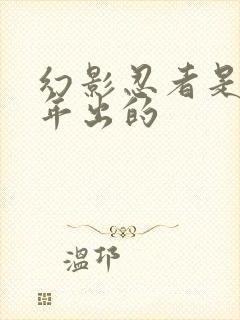 幻影忍者是
年出的
温邗